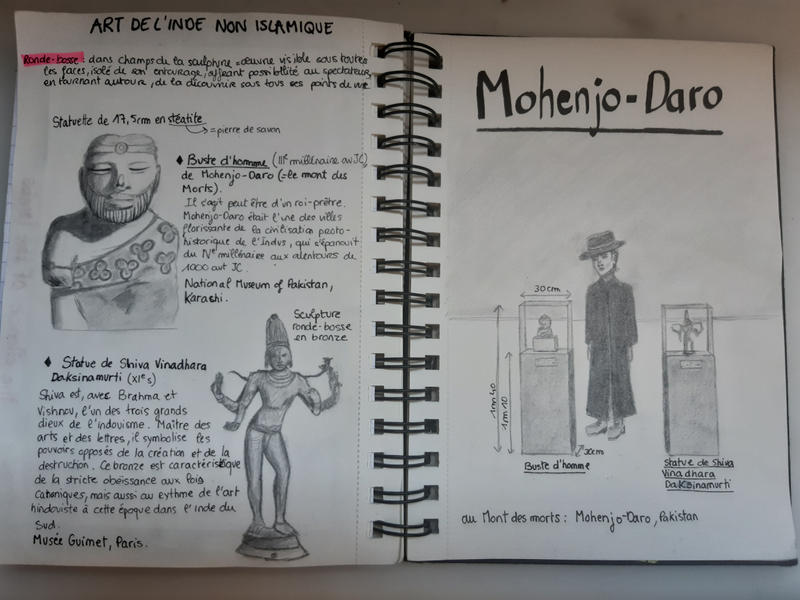 ART DE L'INDE NON ISLAMIQUE
Ronde-bosse : dans champs de la sculpture = œuvre visible sous toutes
les faces, isolé de son entourage, offrant possibilité au spectateur,
en tournant autour, de la découvrir sous tous ses points de vue.
Statuette de 17,5cm en stéatite
= pierre de savon
♦ Buste d'homme (IIIe millénaire av JC)
de Mohenjo-Daro (= le mont des
Morts).
Il s'agit peut être d'un roi-prêtre.
Mohenjo-Daro était l'une des villes
florissante de la civilisation proto-
historique de l'Indus, qui s'épanouit
du IVe millénaire aux alentours de
1000 avt JC.
National Museum of Pakistan,
Karachi.
Sculpture
ronde-bosse
en bronze
♦ Statue de Shiva Vinadhara
Daksinamurti (XIe s)
Shiva est, avec Brahma et
Vishnou, l'un des trois grands
dieux de l'indouisme. Maître des
arts et des lettres, il symbolise les
pouvoirs opposés de la création et de la
destruction. Ce bronze est caractéristique
de la stricte obeissance aux lois
canoniques, mais aussi au rythme de l'art
hindouiste à cette époque dans l'Inde du
Sud.
Musée Guimet, Paris.
Mohenjo-Daro
30cm
1m40
1m10
30cm
Buste d'homme
Statue de Shiva
Vinadhara
Daksinamurti
au Mont des morts : Mohenjo-Daro, Pakistan